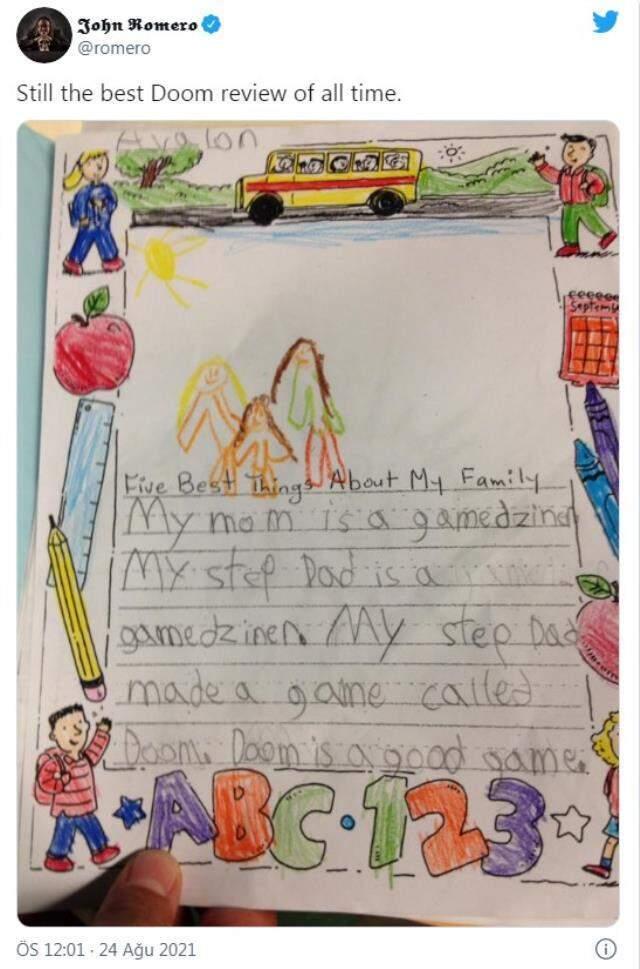 John Romero
@romero
Still the best Doom review of all time.
Avalon
Septem
Five Best Things About My Family
My mom is a gamedziner
My step Dad is a
gamedziner. My step Dad
made a game called
Doom. Doom is a good game.
ABC·123
ÖS 12:01 · 24 Ağu 2021